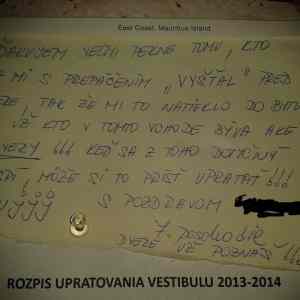 East Coast, Mauritius Island
ĎAKUJEM VEĽMI PEKNE TOMU, KTO
MI S PREPÁČENÍM „VYŠŤAL" PRED
TAK ŽE MI TO NATIEKLO DO BYTU
UŽ KTO V TOMTO VCHODE BÝVA AKÉ
KEĎ SA Z TOHO DOTYČNÝ
MÔŽE SI TO PRÍSŤ UPRATAŤ !!!
S POZDRAVOM
7. POSCHODIE
DVERE UŽ POZNÁŠ
ROZPIS UPRATOVANIA VESTIBULU 2013-2014